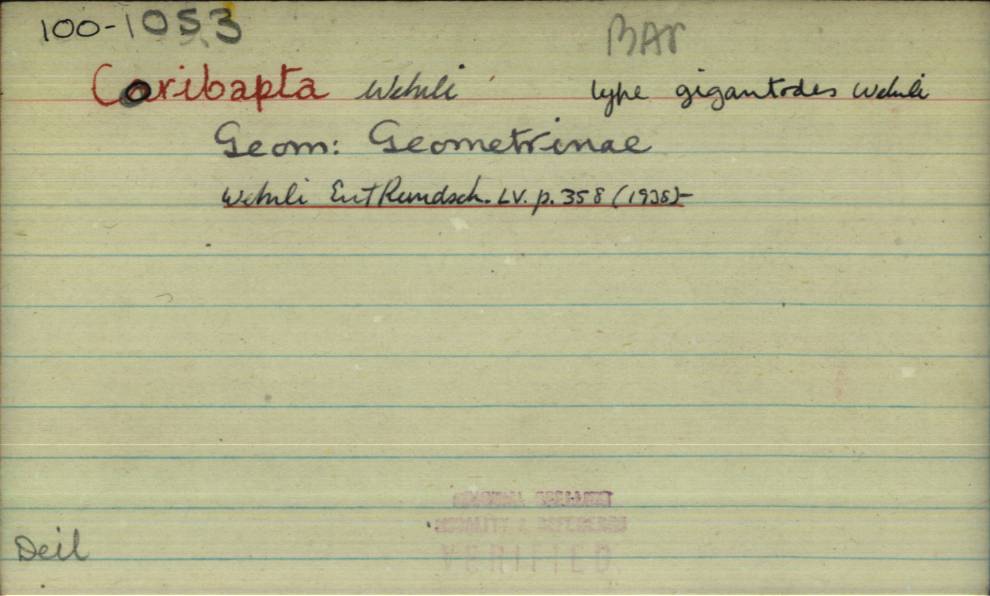 100-1053
BAr
Coribapta Wehrli type gigantodes Wehrli
Geom: Geometrinae
Wehrli Ent Rundsch. LV. p. 358 (1938)-
VERIFIED
Deil